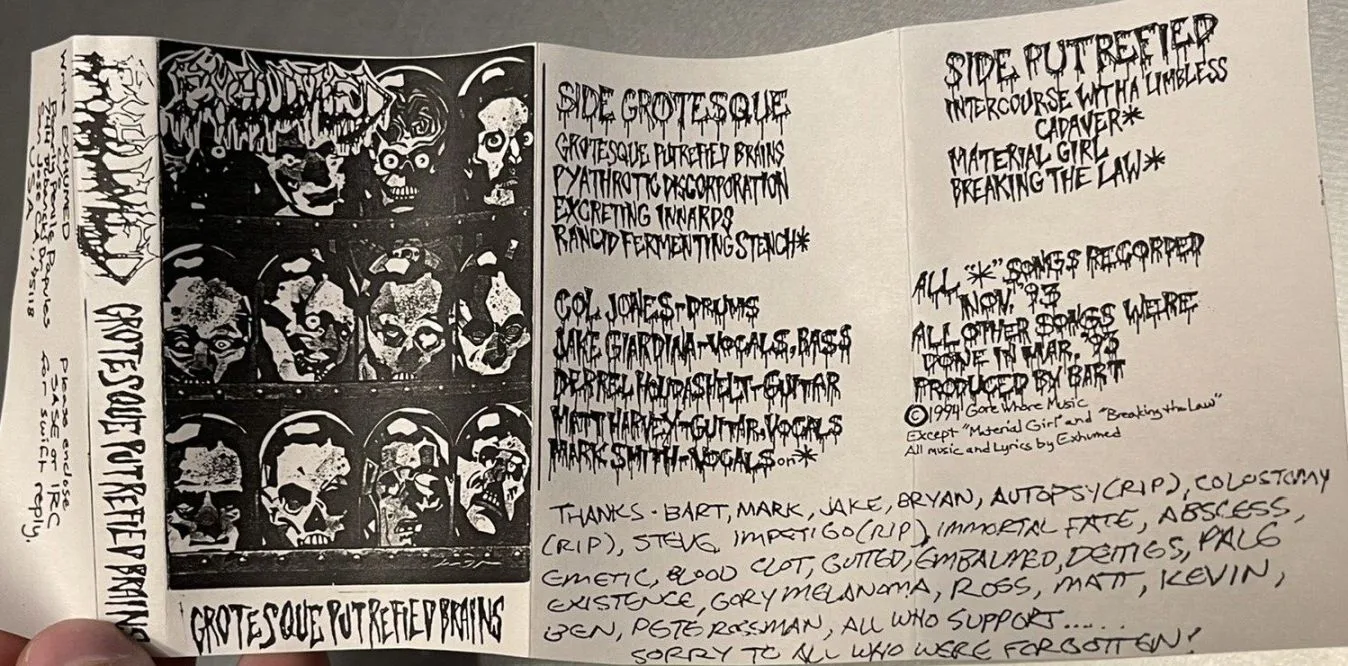 Write EXHUMED
San Jose CA, 95118
USA
Please enclose
SASE or IRC
for swift reply.
EXHUMED
GROTESQUE PUTREFIED BRAINS
EXHUMED
GROTESQUE PUTREFIED BRAINS
SIDE GROTESQUE
GROTESQUE PUTREFIED BRAINS
PYATHROTIC DISCORPORATION
EXCRETING INNARDS
RANCID FERMENTING STENCH*
COL JONES-DRUMS
JAKE GIARDINA-VOCALS, BASS
DERREL HOUDASHELT-GUITAR
MATT HARVEY-GUITAR, VOCALS
MARK SMITH-VOCALS on *
SIDE PUTREFIED
INTERCOURSE WITH A LIMBLESS
CADAVER*
MATERIAL GIRL
BREAKING THE LAW*
ALL "*" SONGS RECORDED
NOV. '93
ALL OTHER SONGS WERE
DONE IN MAR. '93
PRODUCED BY BART
© 1994 Gore Whore Music
Except "Material Girl" and "Breaking the Law"
All music and Lyrics by Exhumed
THANKS - BART, MARK, JAKE, BRYAN, AUTOPSY (RIP), COLOSTOMY
(RIP), STEVE, IMPETIGO (RIP), IMMORTAL FATE, ABSCESS,
EMETIC, BLOOD CLOT, GUTTED, EMBALMED, DEITIES, PALE
EXISTENCE, GORY MELANOMA, ROSS, MATT, KEVIN,
BEN, PETE ROSSMAN, ALL WHO SUPPORT.....
SORRY TO ALL WHO WERE FORGOTTEN!